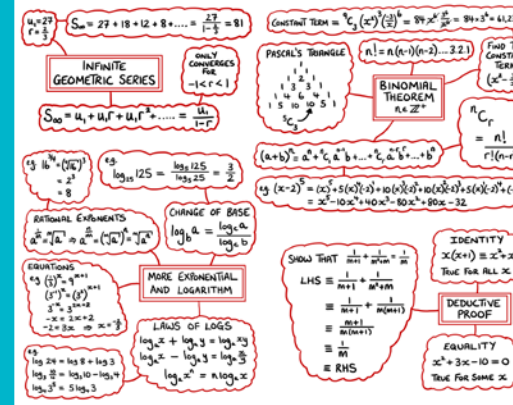 u₁=27
r=2/3
S∞ = 27 + 18 + 12 + 8 + ..... = 27/(1-2/3) = 81
INFINITE
GEOMETRIC SERIES
ONLY
CONVERGES
FOR
-1<r<1
S∞ = u₁ + u₁r + u₁r² + ..... = u₁/(1-r)
CONSTANT TERM = ⁹C₃ (x²)³ (-3/x)⁶ = 84 x⁶ 3⁶/x⁶ = 84×3⁶ = 61,2
PASCAL'S TRIANGLE
1
1 1
1 2 1
1 3 3 1
1 4 6 4 1
1 5 10 10 5 1
⁵C₃
n! = n(n-1)(n-2)....3.2.1
FIND
CONSTA
TERM
BINOMIAL
THEOREM
n∈ℤ⁺
ⁿCᵣ
= n!
r!(n-r
(a+b)ⁿ = aⁿ + ⁿC₁ aⁿ⁻¹b + ... + ⁿCᵣ aⁿ⁻ʳbʳ + ... + bⁿ
eg (x-2)⁵ = (x)⁵ + 5(x)⁴(-2) + 10(x)³(-2)² + 10(x)²(-2)³ + 5(x)(-2)⁴ + (-
= x⁵ - 10x⁴ + 40x³ - 80x² + 80x - 32
eg 16^(3/4) = (⁴√16)³
= 2³
= 8
e.g.
log₂₅ 125 = log₅ 125 / log₅ 25 = 3/2
RATIONAL EXPONENTS
a^(1/m) = ᵐ√a ⇒ a^(n/m) = (ᵐ√a)ⁿ = ᵐ√aⁿ
CHANGE OF BASE
log_b a = log_c a / log_c b
EQUATIONS
-x = 2x+2
-2 = 3x ⇒ x = -2/3
MORE EXPONENTIAL
AND LOGARITHM
LAWS OF LOGS
logₐ x + logₐ y = logₐ xy
logₐ x - logₐ y = logₐ x/y
logₐ xⁿ = n logₐ x
e.g.
log 24 = log 8 + log 3
log₄ 3⁵ = 5 log₄ 3
SHOW THAT 1/(m+1) + 1/(m²+m) = 1/m
LHS ≡ 1/(m+1) + 1/(m²+m)
≡ 1/(m+1) + 1/(m(m+1))
≡ (m+1)/(m(m+1))
≡ 1/m
≡ RHS
IDENTITY
x(x+1) ≡ x²+x
TRUE FOR ALL x
DEDUCTIVE
PROOF
EQUALITY
x²+3x-10=0
TRUE FOR SOME x